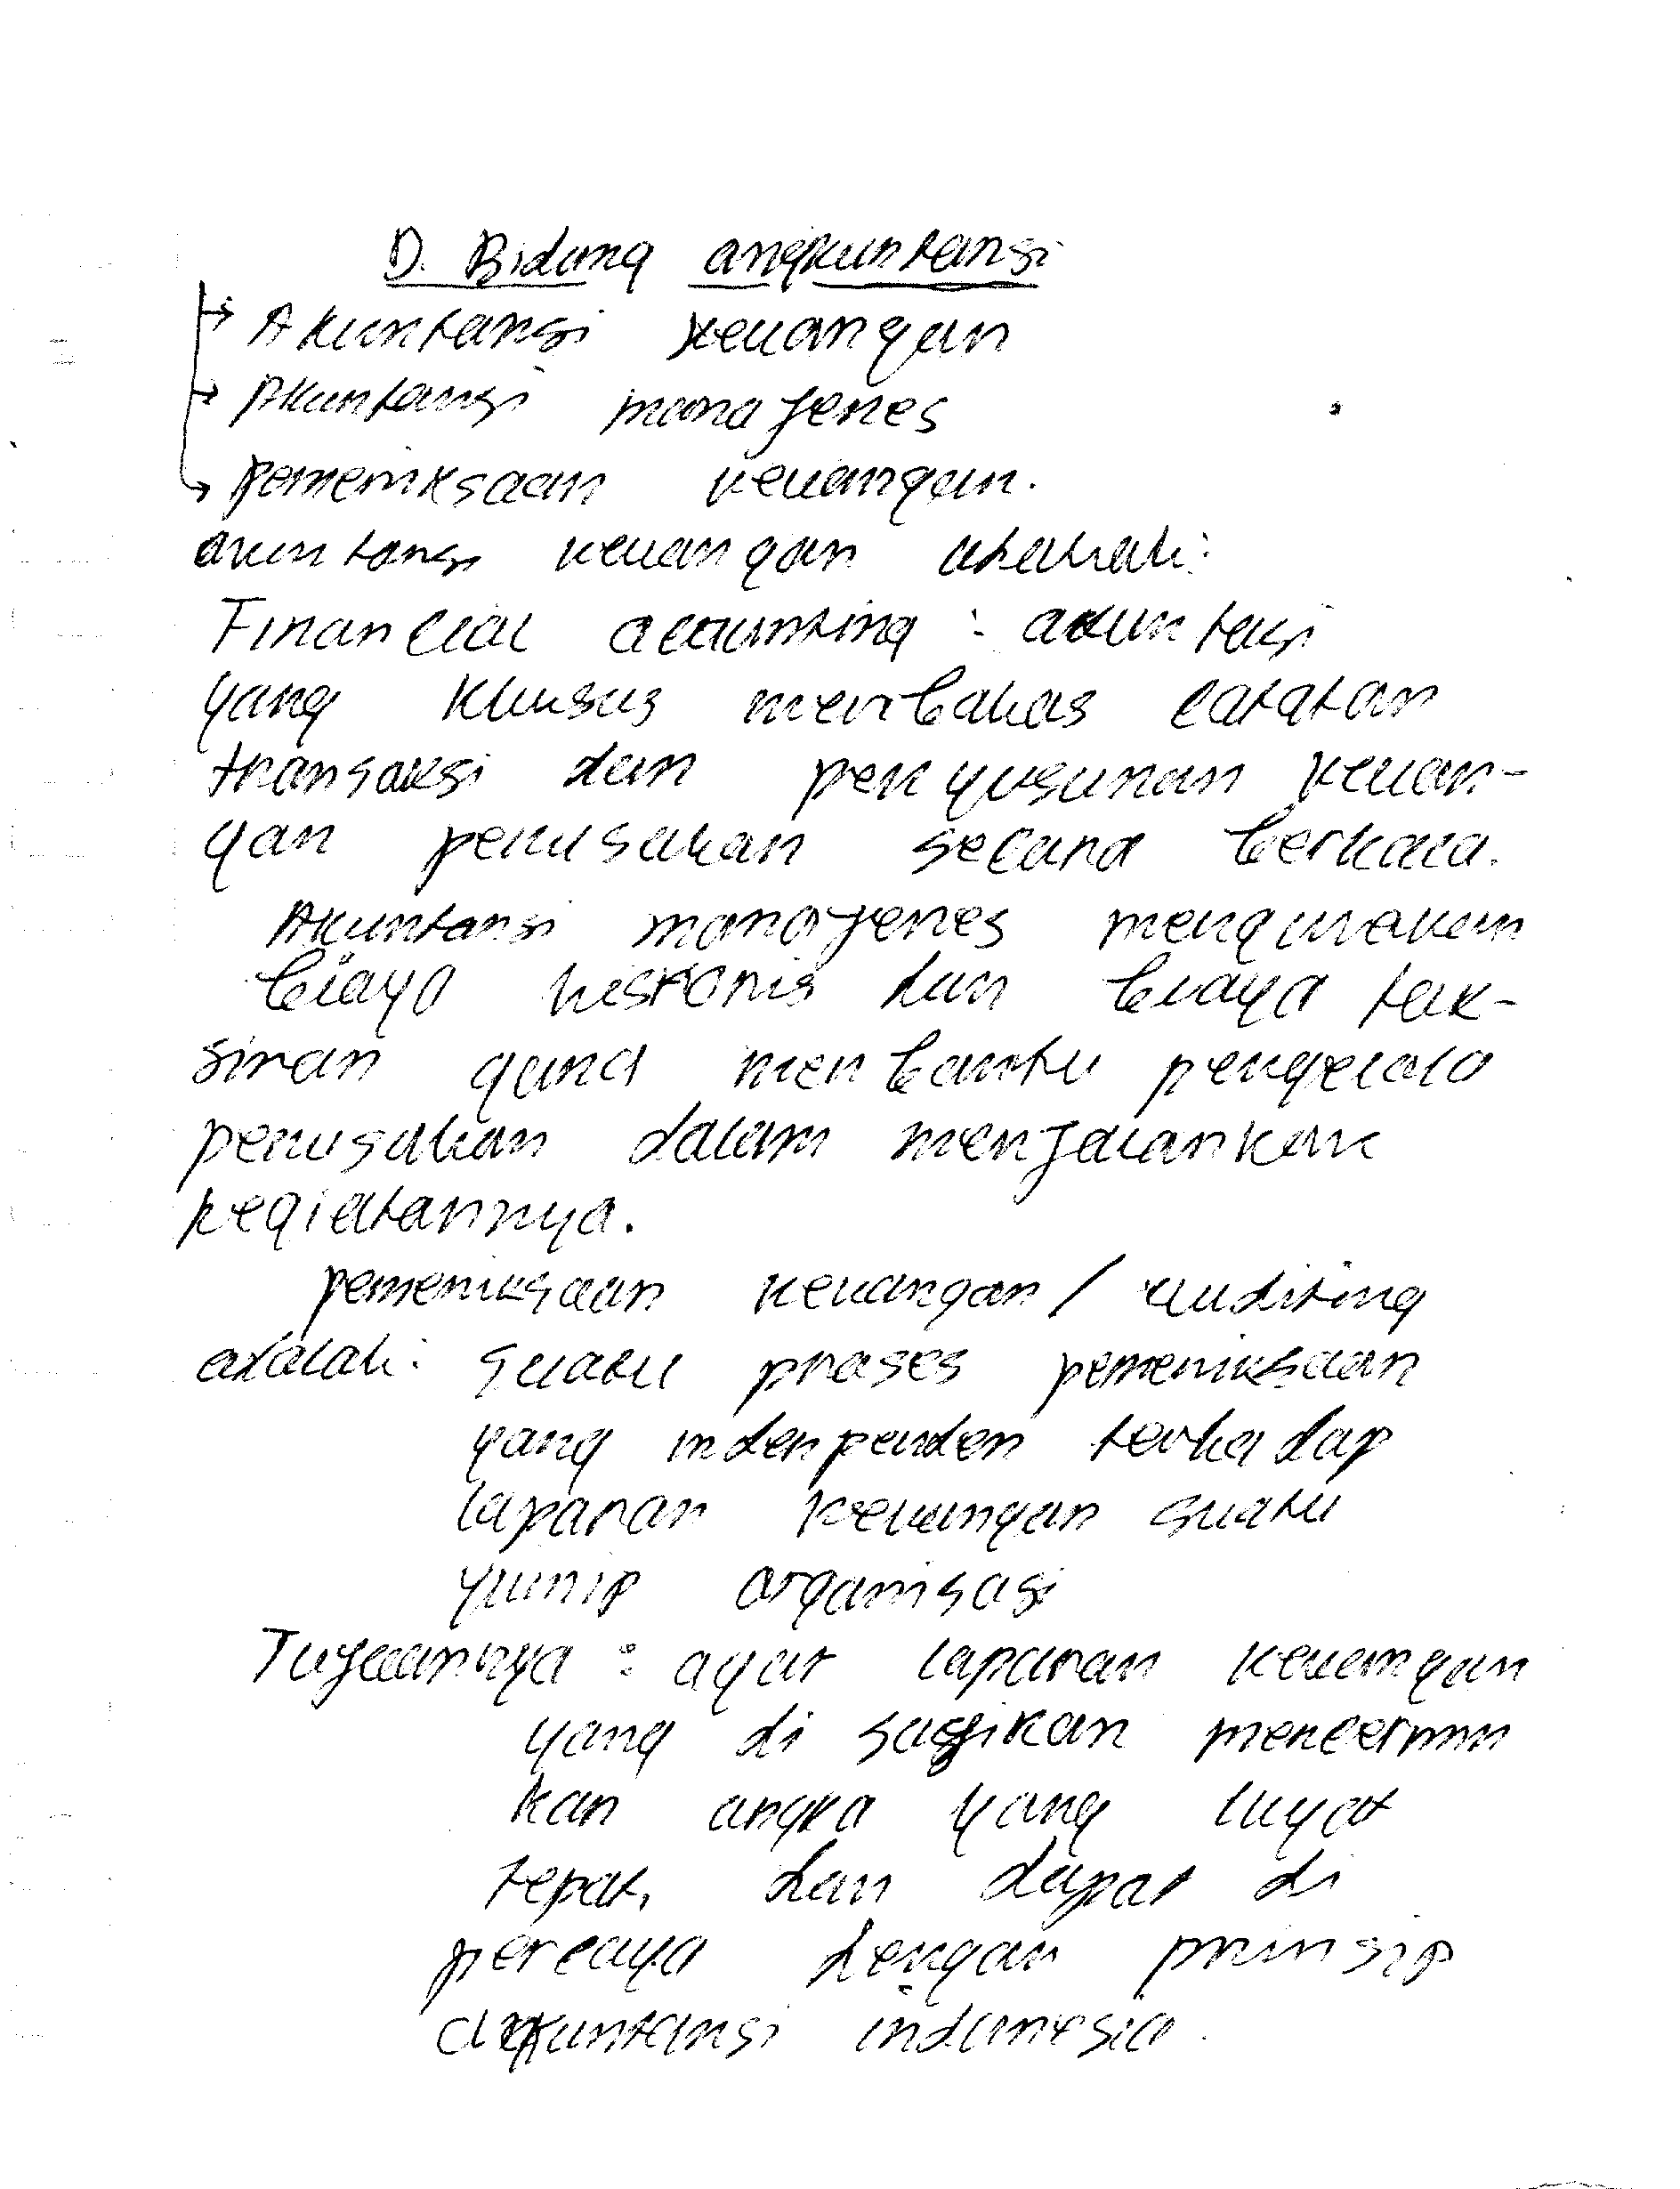 D. Bidang angkuntansi
→ Akuntansi keuangan
→ Akuntansi manajenes
→ pemeriksaan keuangan.
akuntansi keuangan adalah:
Financial accounting : akuntasi
yang khusus membahas catatan
transaksi dan penyusunan keuan-
gan perusahan secara berkala.
Akuntansi manajenes mengunakan
biaya historis dan biaya tak-
siran guna menbantu pengelola
perusahan dalam menjalankan
kegiatannya.
pemeriksaan keuangan / auditing
adalah: suatu proses pemeriksaan
yang indenpenden terhadap
laporan keuangan suatu
yunip organisasi
Tujuannya : agar laporan keuangan
yang di sajikan mencermin
kan angka yang
tepat, dan dapat di
percaya dengan prinsip
akuntansi indonesia.